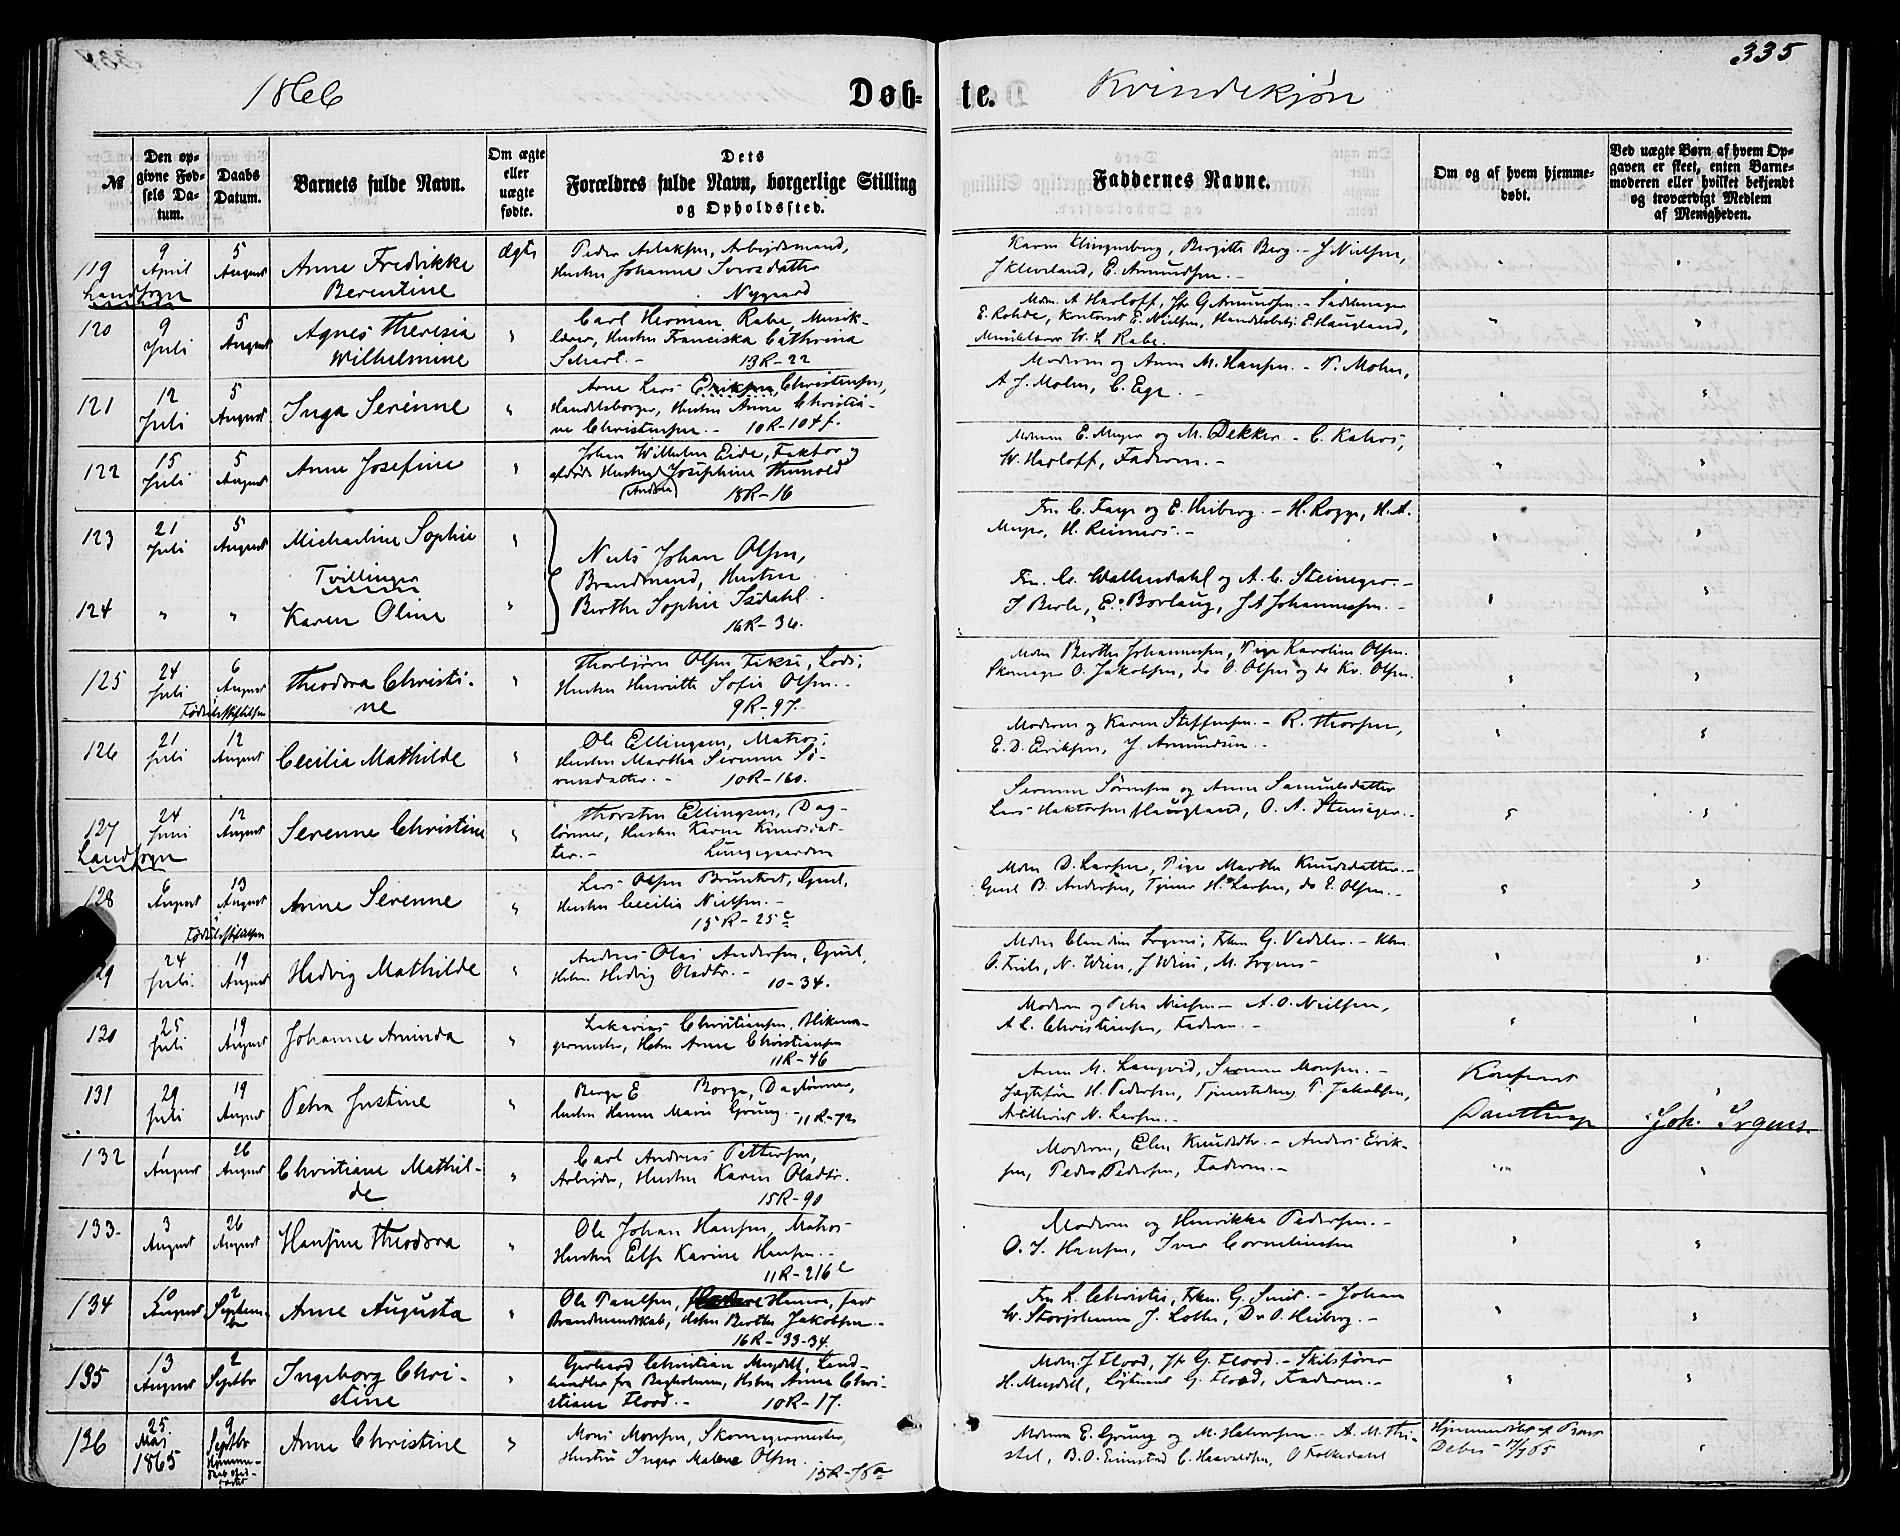 335
1866
Døb-
te.
Kvindekjøn
№
Den op-
givne Fød-
sels Da-
tum.
Daabs
Datum.
Barnets fulde Navn.
Om ægte
eller
uægte
fødte.
Dets
Forældres fulde Navn, borgerlige Stilling
og Opholdssted.
Faddernes Navne.
Om og af hvem hjemme-
døbt.
Ved uægte Børn af hvem Op-
gaven er skeet, enten Barne-
moderen eller hvilket bekjendt
og troværdigt Medlem
af Menigheden.
119
Landsogn
9
April
5
August
Anne Fredrikke
Berentine
Ægte
Peder Aslaksen, Arbejdsmand,
Hustru Johanne Iversdatter
Nygaard
Karen Klingenberg, Birgitte Berg. - J Nielsen,
J Kleveland, E. Amundsen. -
120
9
Juli
5
August
Agnes Theresia
Wilhelmine
Carl Herman Rabe, Musik-
lærer, Hustru Franciska Cathrina
13R-22
Mdm. A Harloff, Jfr G Amundsen. - Sadelmager
E. Rohde, Kontorist E. Nielsen, Handelsbetj. E. Haugland,
Musiklærer W. L Rabe.
121
12
Juli
5
August
Inga Serinne
Arne Lars Eriksen Christensen,
Handelsborger, Hustru Anne Christia-
ne Christensen. - 10R-104f.
Moderen og Anne M. Hansen. - P. Mohn,
A J. Mohn, C. Ege. -
122
15
Juli
5
August
Anne Josefine
Johan Wilhelm Eide, Faktor og
afdøde Hustru Josephine Thunold
(Andrea) 18R-16
Mdmm E. Meyer og M. Dekker. - C. Kahrs,
W. Harloff, Faderen. -
123
21
Juli
5
August
Michaeline Sophie
Tvillinger
Niels Johan Olsen,
Brandmand, Hustru
Berthe Sophie Isdahl.
16R-36.
Fru C. Faye og E. Heiberg. - H. Rogge, H. A.
Meyer, H. Reimers. -
124
Karen Oline
Fru C. Wallendahl og A. C. Steineger. -
J Berle, E. Borlaug, J A Johannessen. -
125
24
Juli
6
August
Fødselsstiftelsen
Theodora Christi-
ne
Thorbjørn Olsen Fiksе, Lods,
Hustru Henriette Sofie Olsen. -
9R-97.
Mdm Berthe Johannessen, Pige Karoline Olsen.
Skomager O. Jakobsen, do O. Olsen og do Kr. Olsen.
126
21
Juli
12
August
Cecilia Mathilde
Ole Ellingsen, Matros,
Hustru Martha Serine Sø-
rensdatter. - 10R-160.
Moderen og Karen Steffensen. - R. Thorsen,
E. D. Eriksen, J. Amundsen. -
127
Landsogn
24
Juni
12
August
Serenne Christine
Thorsten Ellingsen, Dag-
lønner, Hustru Karen Knudsdat-
ter. - Lungegaarden
Serenne Sørensen og Anne Samuelsdatter
Lars Haktorsen Haugland, O. A. Steneger. -
128
6
August
13
August
Fødselsstiftelsen
Anne Serenne
Lars Olsen Bruntvet, Gaul,
Hustru Cecilia Nielsen. -
15R-25c
Mdm D. Larsen, Pige Marthe Knudsdatter.
Gaul B. Andersen, Tjener H. Larsen, do E. Olsen. -
29
24
Juli.
19
August
Hedvig Mathilde
Andreas Olai Andersen, Gaul,
Hstru Hedvig Olsdtr. - 10-34.
Mdm Claudine Irgens, Frkn G. Vedeler. -
O. Friele, N. Wiese, J Wiese, M. Irgens -
130
25
Juli
19
August
Johanne Aminda
Zakarias Christiansen, Blikken-
germester, Hstru Anne Christiansen
11R-46
Moderen og Petra Nielsen - A. O. Nielsen,
A L. Christiansen, Faderen. -
131
29
Juli
19
August
Petra Justine
Berge E Borge, Daglønner,
Hustru Hanne Marie Grung. - 11R-72
Anne M. Langvid, Serenne Monsen. -
Jægtefører H. Pedersen, Tjenestedreng P. Jakobsen,
N. Larsen. -
Konfirmt
Dantterup
Joh. Irgens.
132
1
August
26
August
Christiane Mathil-
de
Carl Andreas Pettersen,
Arbeider, Hustru Karen Olsdtr.
15R-90
Moderen, Elen Knudsdtr. - Anders Erik-
sen, Peder Pedersen, Faderen. -
133.
3
August
26
August
Hansine Theodora
Ole Johan Hansen, Matros
Hustru Else Karine Hansen. -
11R-216c
Moderen og Henrikke Pedersen. -
O. J. Hansen, Iver Corneliussen
134
10
August
2
Septem-
br
Anne Augusta
Ole Paulsen, Hamre, fast
Brandmandskab, Hstru Berthe Jakobsen. -
16R-33-34.
Fru L Christie, Frkn. G. Smit. - Johan
W. Storjohann J. Lothe, Dr O. Heiberg. -
135
13
August
2
Septbr
Ingeborg Chri-
stine
Gerhard Christian Mugdell, Land-
handler fra Bagholmen, Hstru Anne Chri-
stiane Flood. - 10R-17.
Mdm. J Flood, Jfr G. Flood. - Skibsfører
H. Mugdell, Løjtnant G. Flood, Faderen. -
136
25.
Mai
1865
9
Septbr
Anne Christine
Mons Monsen, Skomagermester,
Hustru Inger Malene Olsen.
15R-76a
Mdmm E. Grung og M. Halvorsen. A. M. Thi-
stel, B. O. Eimstad C. Haavaldsen, O Folkedahl
Hjemmedøbt af Præst
Debes - 17/7 65